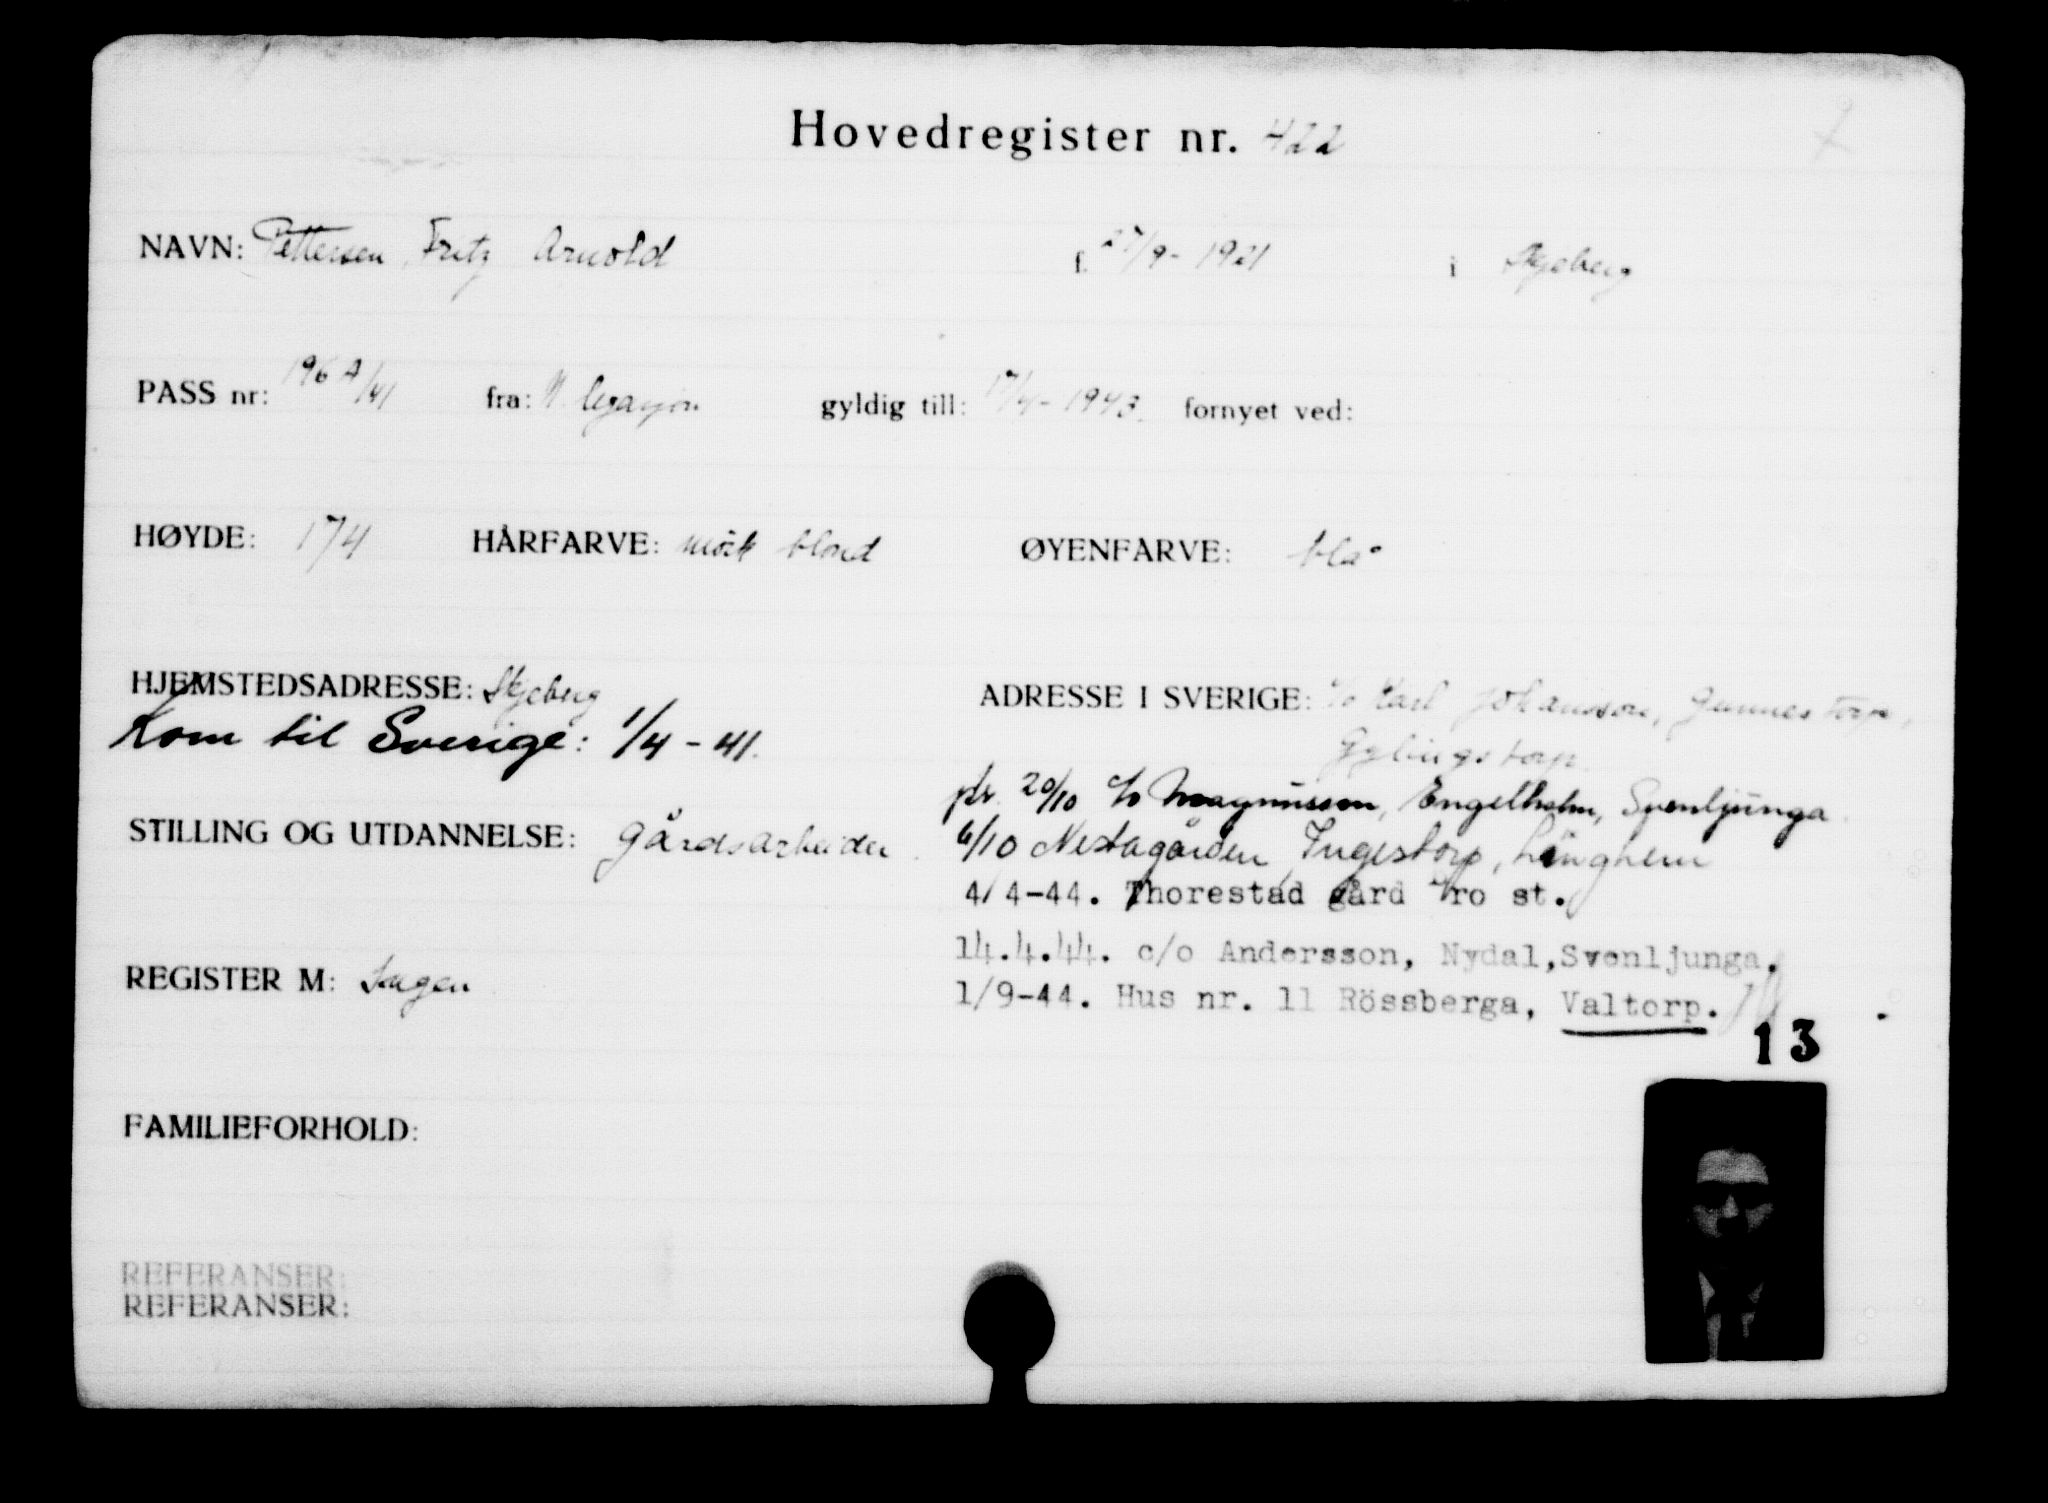 Hovedregister nr. 422
NAVN: Pettersen, Fritz Arnold f. 27/9-1921 i Skjeberg
PASS nr: 196A/41 fra: N. legasjon gyldig till: 17/4-1943. fornyet ved:
HØYDE: 174 HÅRFARVE: mörk blond ØYENFARVE: blå
HJEMSTEDSADRESSE: Skjeberg ADRESSE I SVERIGE: c/o Karl Johansson, Gunnestorp,
Kom til Sverige: 1/4-41.
pr. 20/10 c/o Magnusson, Engelholm, Svenljunga.
STILLING OG UTDANNELSE: Gårdsarbeider. 6/10 Nestagården, Ingestorp, Länghem
4/4-44. Thorestad gård Bro st.
14.4.44. c/o Andersson, Nydal, Svenljunga.
REGISTER M: Ingen 1/9-44. Hus nr. 11 Rössberga, Valtorp.
13
FAMILIEFORHOLD:
REFERANSER:
REFERANSER: